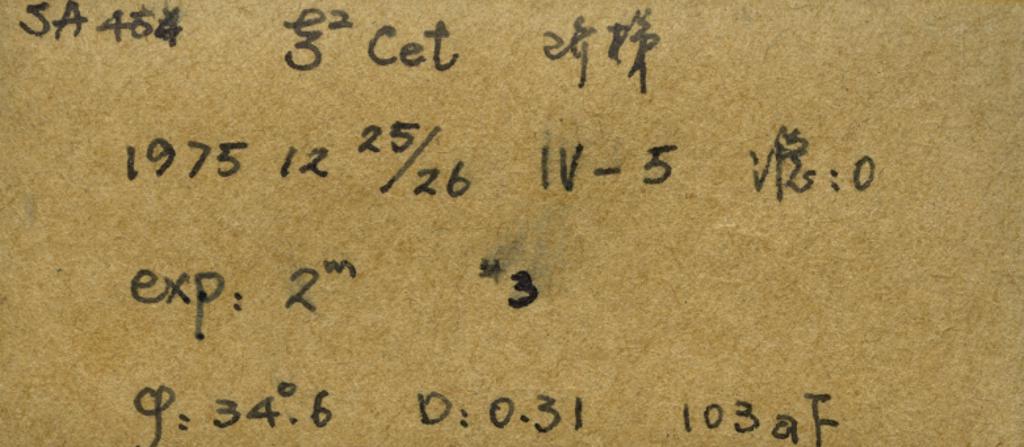 ξ² Cet 阶梯
1975 12 25/26 IV-5 滤:0
exp: 2ᵐ #3
φ: 34°.6 D: 0.31 103aF